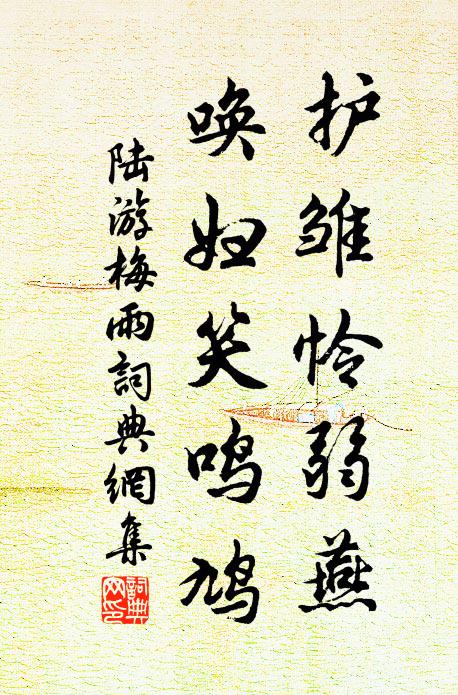 护雏怜弱燕
唤妇笑鸣鸠
陆游梅雨詞典網集
詞典网印